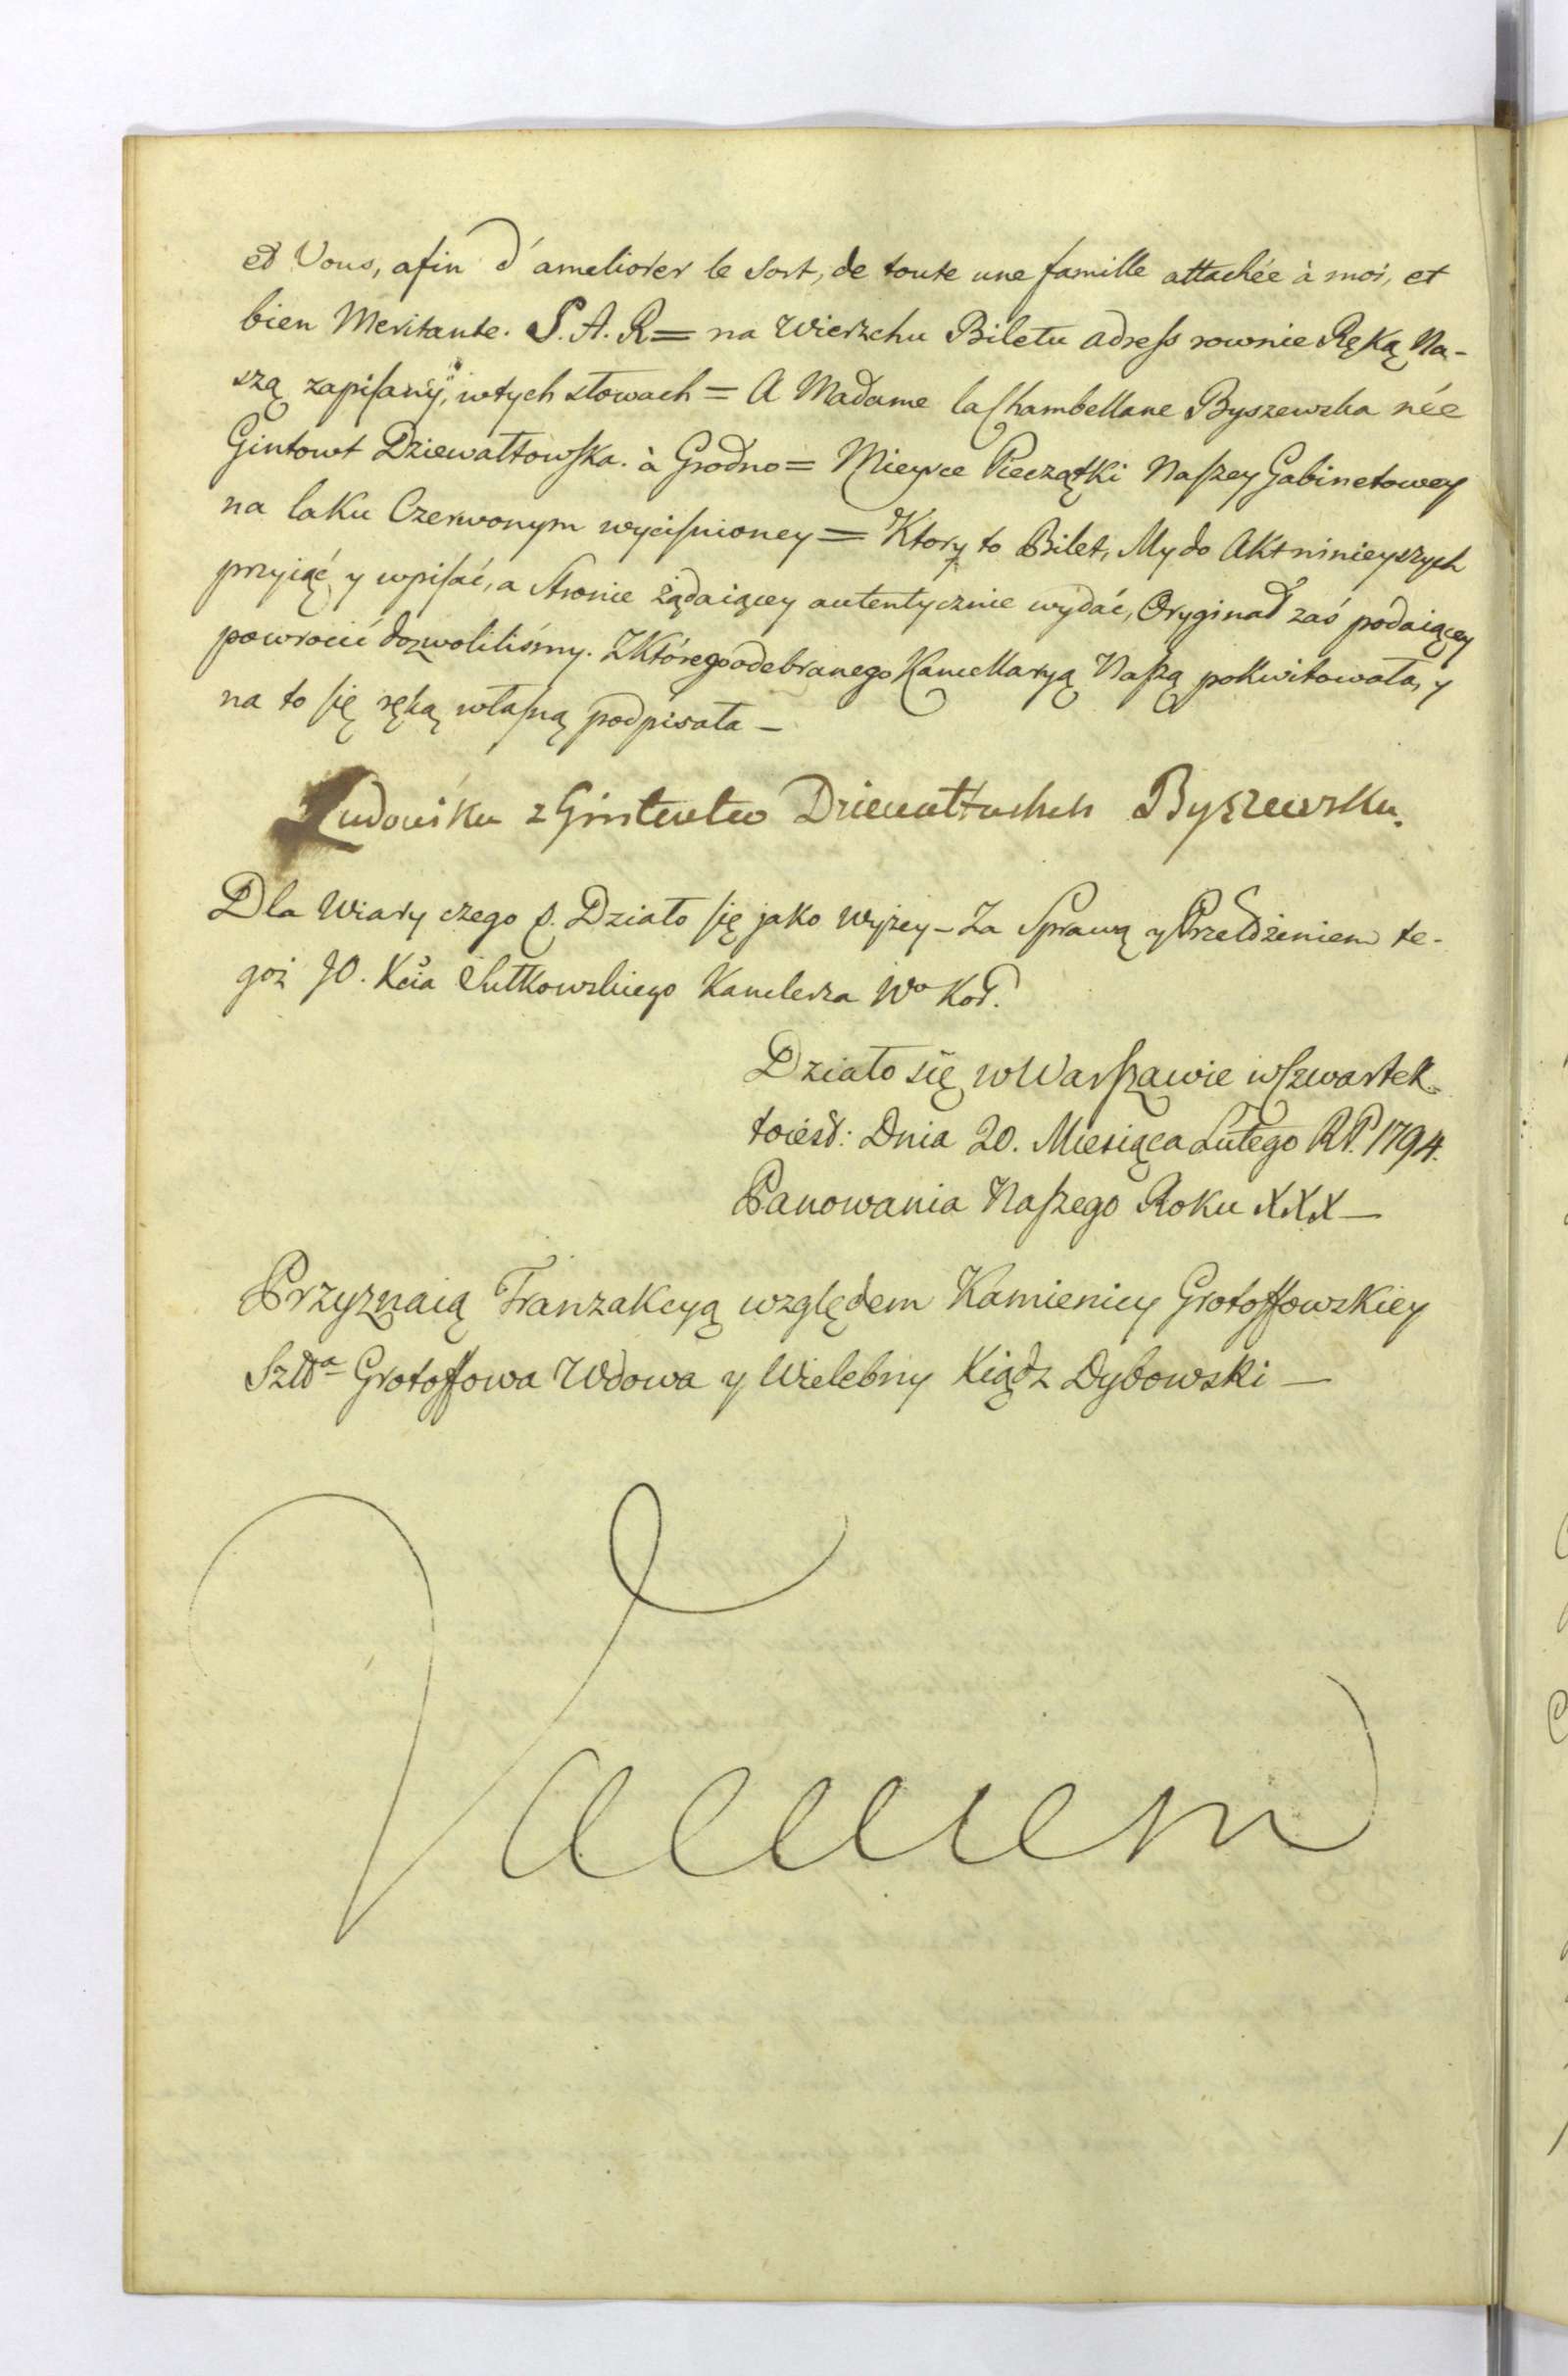 et Vous, afin d'ameliorer le sort, de toute une famille attachée à moi, et
bien Meritante. S. A. R = na Wierzchu Biletu adreſs rownie Ręką Na-
szą zapiſany, wtych słowach = A Madame la Chambellane Byszewska née
Gintowt Dziewałtowſka. à Grodno = Mieysce Pieczątki Naſzey Gabinetowey
na laku Czerwonym wyciſnioney = Ktory to Bilet, My do Akt ninieyszych
przyiąć y wpiſać, a Stronie żądaiącey autentycznie wydać, Oryginał zaś podaiącey
powrocić dozwoliliśmy. Z Którego odebranego Kancellaryą Naſzą pokwitowała, y
na to ſię ręką właſną podpisała –
Ludowika z Gintowtow Dziewałtowskich Byszewska.
Dla Wiary czego p. Działo ſię jako wyżey – Za Sprawą y Przełożeniem te-
goż JO. Kcia Sułkowskiego Kanclerza Wo Kor.
Działo się w Warſzawie w Czwartek
toiest: Dnia 20. Miesiąca Lutego R.P. 1794.
Panowania Naſzego Roku XXX –
Przyznaią Tranzakcyą względem Kamienicy Grotoffowskiey
Szltta Grotoffowa Wdowa y Wielebny Xiądz Dybowski –